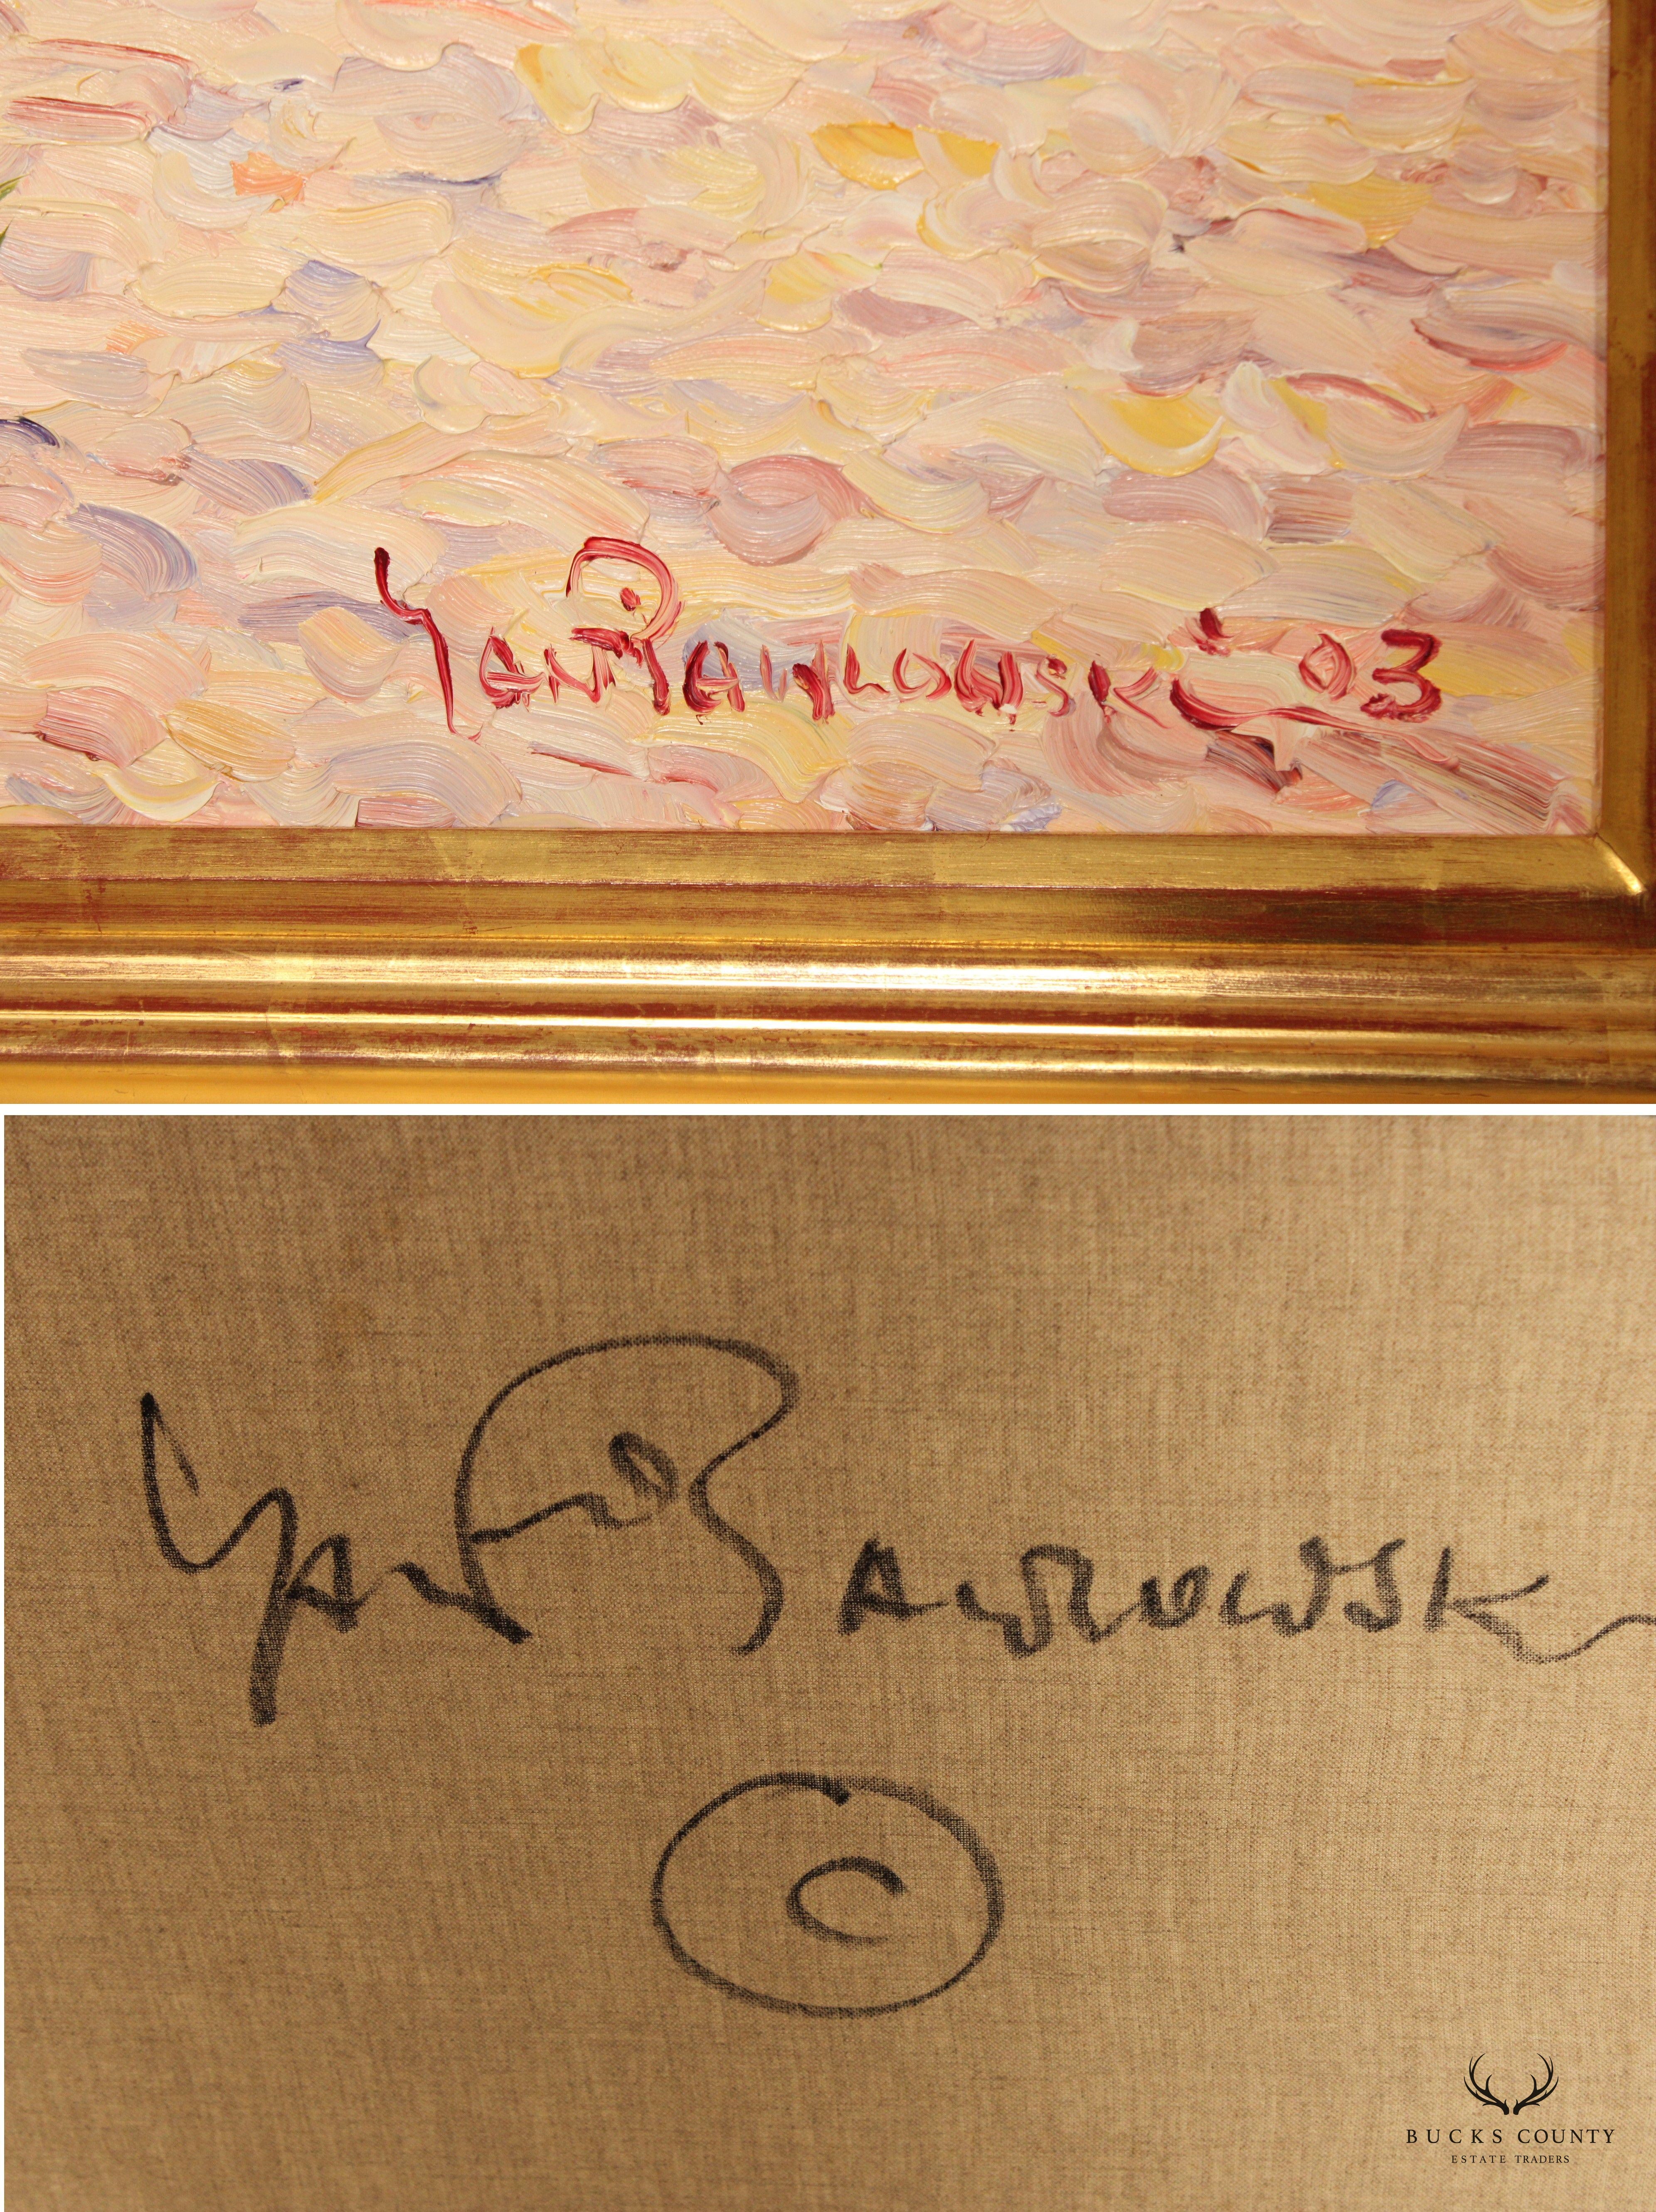 Yan Pawlowski '03
Yan Pawlowski
©
BUCKS COUNTY
ESTATE TRADERS